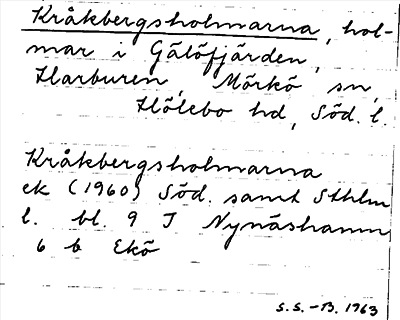 Kråkbergsholmarna, hol-
mar i Gälöfjärden,
Harburen, Mörkö sn,
Hölebo hd, Söd. l.
Kråkbergsholmarna
ek (1960) Söd. samt Sthlm
l. bl. 9 I Nynäshamn
6 b Ekö
S.S.-B. 1963